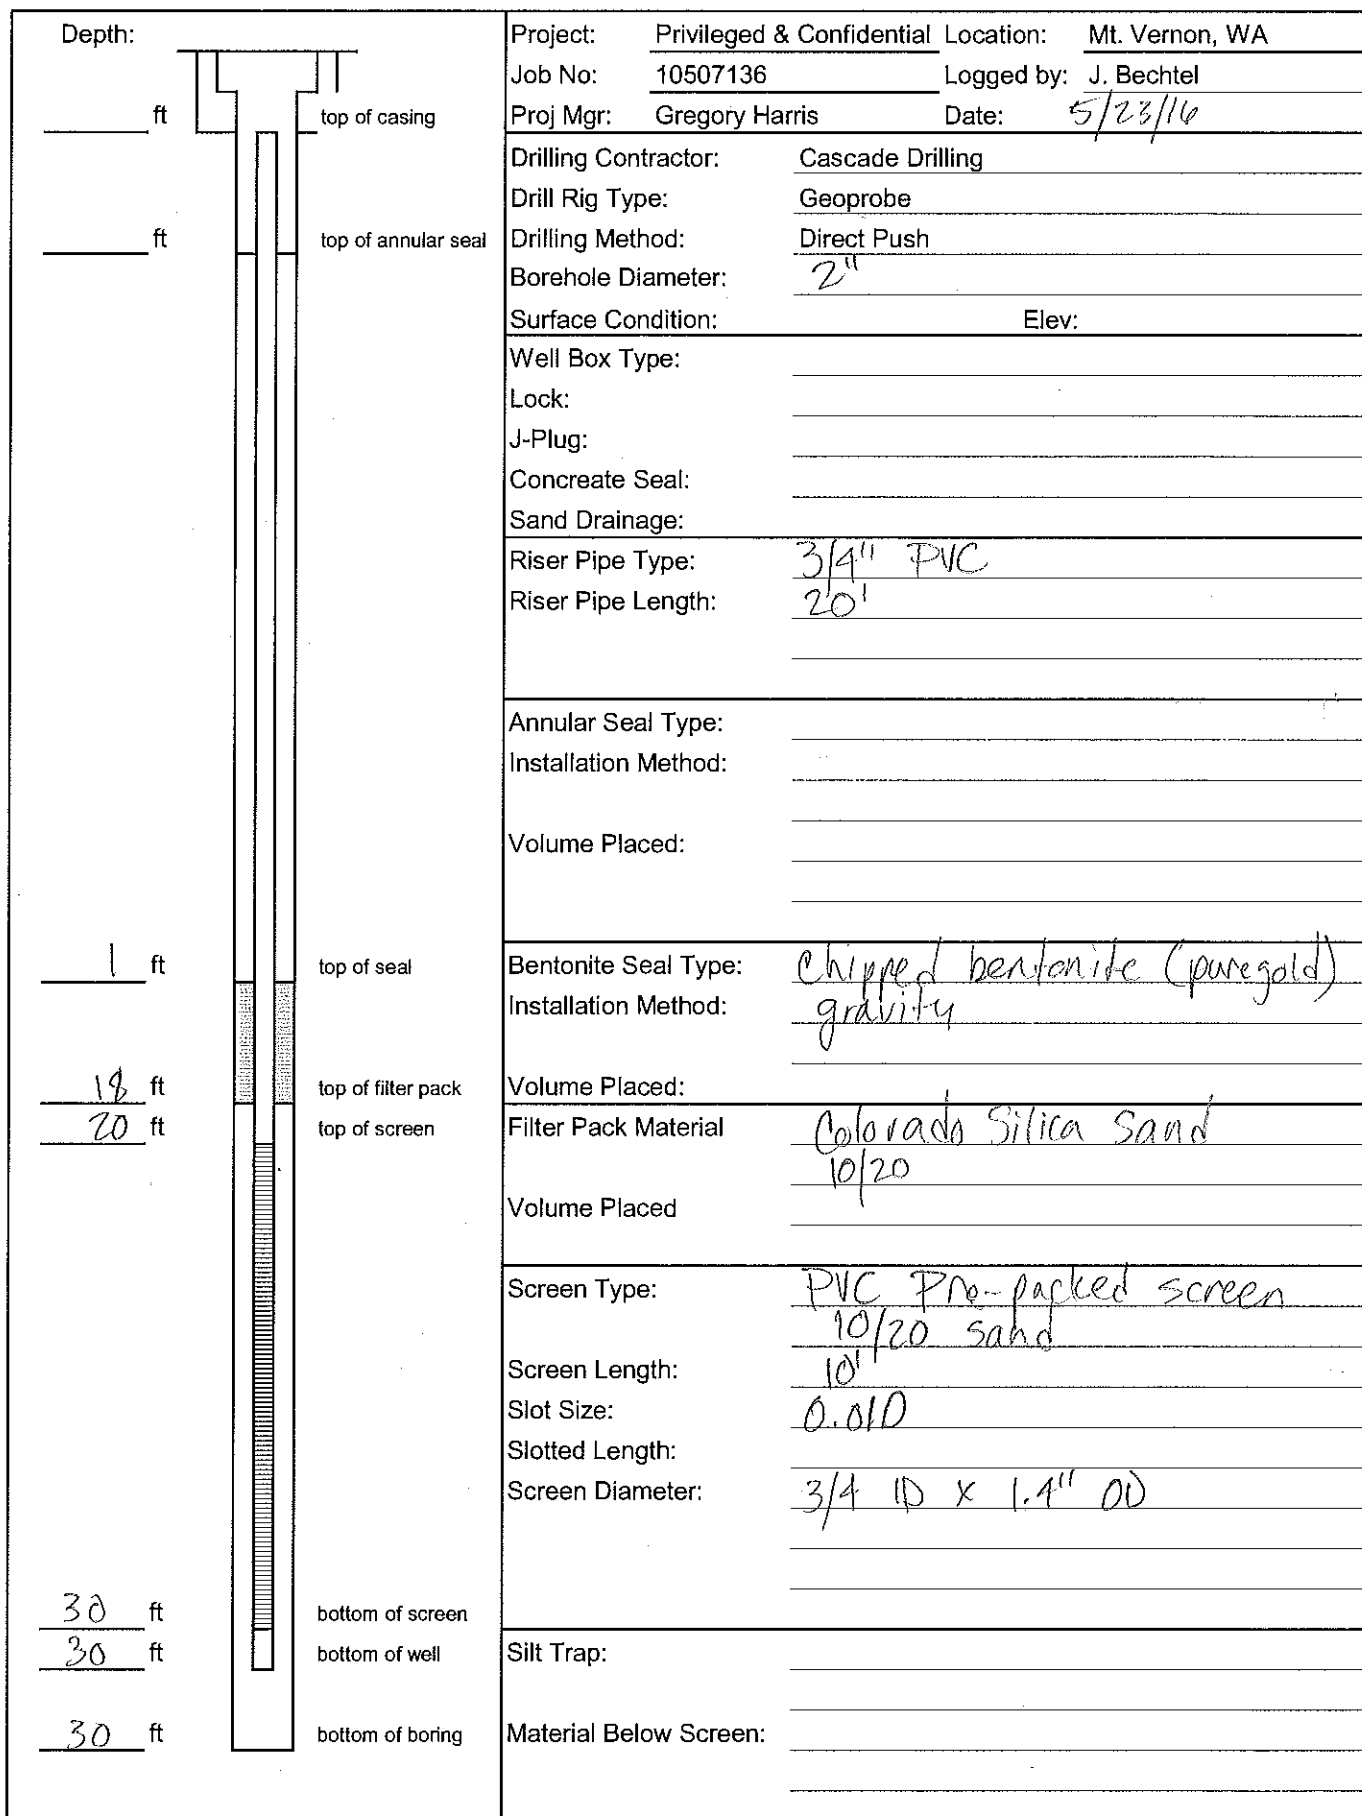 Depth:
ft top of casing
ft top of annular seal
1 ft top of seal
18 ft top of filter pack
20 ft top of screen
30 ft bottom of screen
30 ft bottom of well
30 ft bottom of boring
Project: Privileged & Confidential Location: Mt. Vernon, WA
Job No: 10507136 Logged by: J. Bechtel
Proj Mgr: Gregory Harris Date: 5/23/16
Drilling Contractor: Cascade Drilling
Drill Rig Type: Geoprobe
Drilling Method: Direct Push
Borehole Diameter: 2"
Surface Condition: Elev:
Well Box Type:
Lock:
J-Plug:
Concreate Seal:
Sand Drainage:
Riser Pipe Type: 3/4" PVC
Riser Pipe Length: 20'
Annular Seal Type:
Installation Method:
Volume Placed:
Bentonite Seal Type: Chipped bentonite (puregold)
Installation Method: gravity
Volume Placed:
Filter Pack Material Colorado Silica Sand
10/20
Volume Placed
Screen Type: PVC Pre-packed screen
10/20 sand
Screen Length: 10'
Slot Size: 0.010
Slotted Length:
Screen Diameter: 3/4 ID x 1.4" OD
Silt Trap:
Material Below Screen: